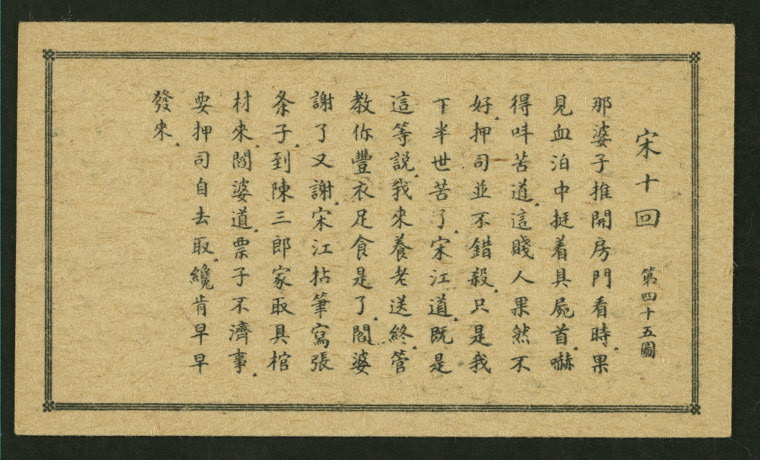 宋十回
第四十五圖
那婆子推開房門看時.果
見血泊中挺着具屍首.嚇
得呌苦道.這賤人果然不
好.押司並不錯殺.只是我
下半世苦了.宋江道.既是
這等說.我來養老送終.管
教你豐衣足食是了.閻婆
謝了又謝.宋江拈筆寫張
条子.到陳三郎家取具棺
材來.閻婆道.票子不濟事.
要押司自去取.纔肯早早
發來.